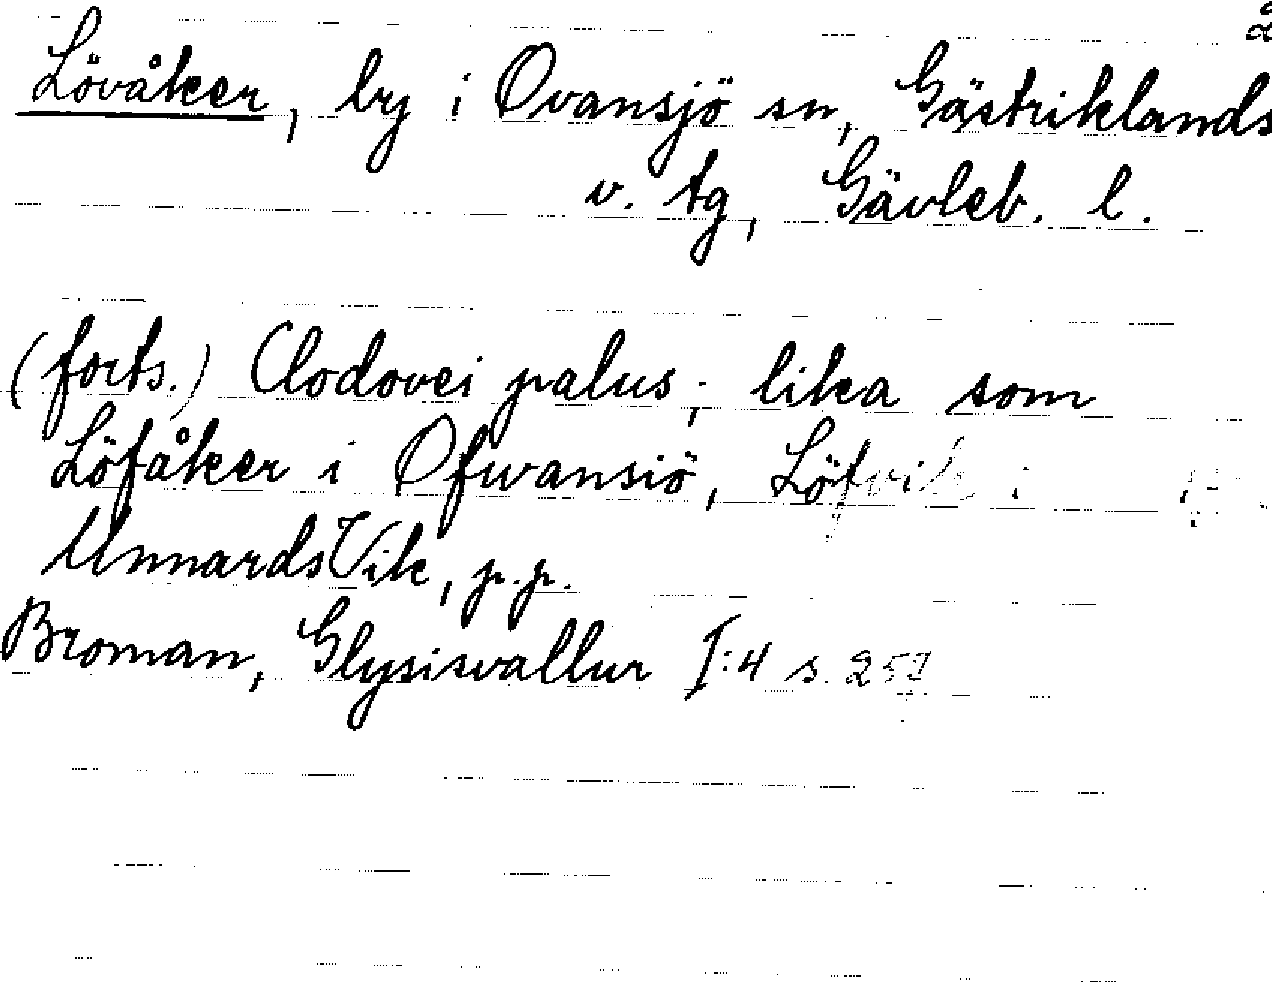 Lövåker, by i Ovansjö sn, Gästriklands
v. tg, Gävleb. l.
(forts.) Clodovei palus; lika som
Löfåker i Ofwansiö, Löfvik i
UnnardsVik, p.p.
Broman, Glysisvallur I:4 s. 257